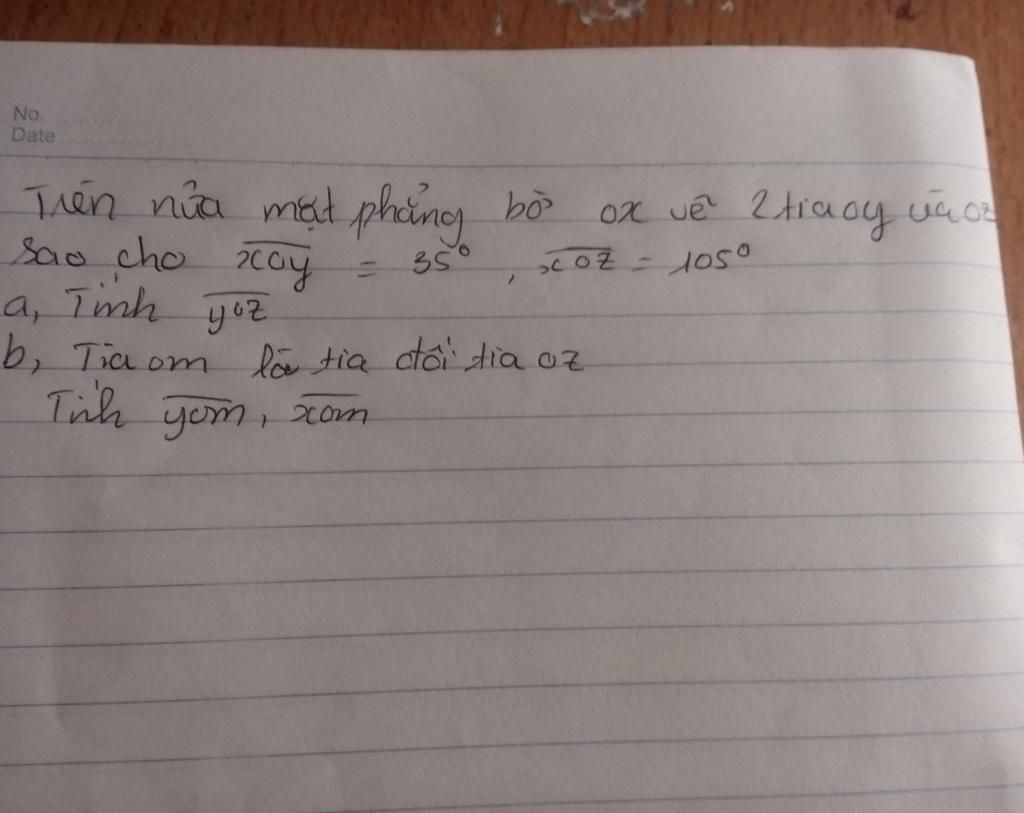 No.
Date
Trên nửa mặt phẳng bờ ox vẽ 2 tia oy và oz
sao cho xoy = 35°, xoz = 105°
a, Tính yoz
b, Tia om là tia đối tia oz
Tính yom, xom